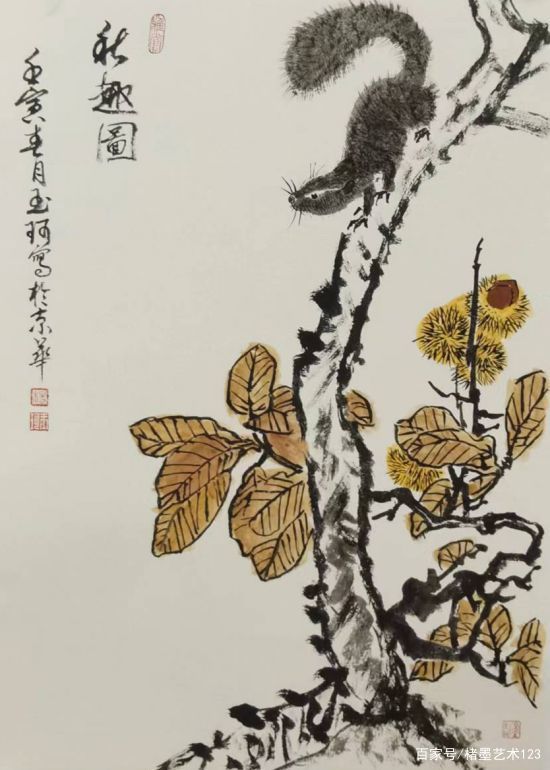 秋趣圖
壬寅春月玉珂寫於京華
百家号/楮墨艺术123